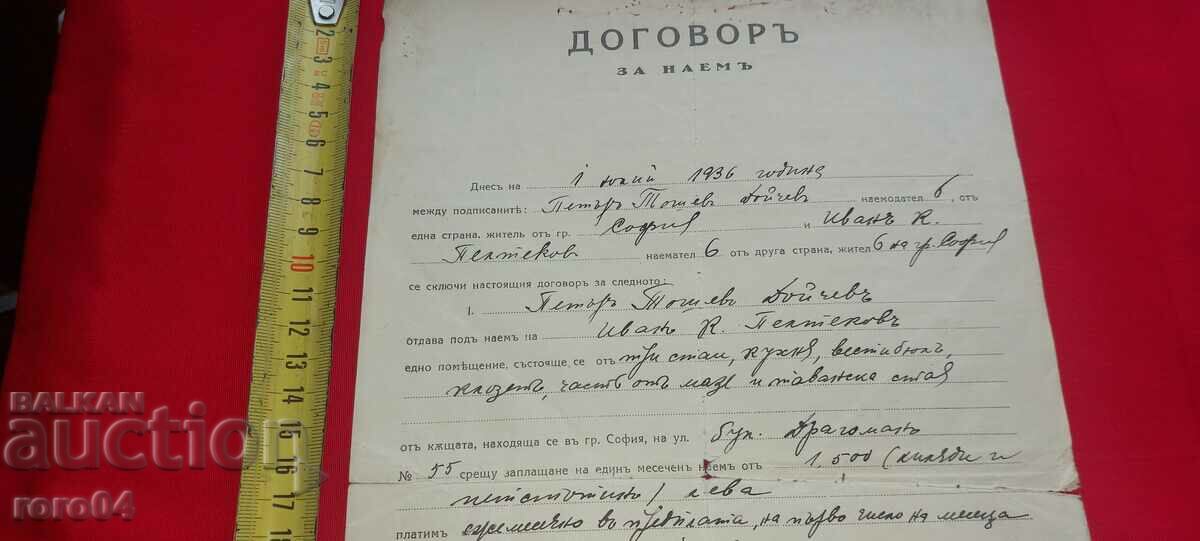 ДОГОВОРЪ
ЗА НАЕМЪ
Днесъ на 1 юлий 1936 година
между подписанитѣ: Петъръ Тошевъ Дойчевъ наемодател б, отъ
една страна, жител отъ гр. София и Иванъ К.
Пелтековъ наемател б отъ друга страна, жител б на гр. София
се сключи настоящия договоръ за следното:
1. Петъръ Тошевъ Дойчевъ
Отдава подъ наемъ на Иванъ К. Пелтековъ
едно помѣщение, състояще се отъ три стаи, кухня, вестибюлъ,
клозетъ, часть отъ мазе и таванска стая
отъ кѫщата, находяща се въ гр. София, на ул. бул. Драгоманъ
№ 55 срещу заплащане на единъ месеченъ наемъ отъ 1,500 (хиляди и
петстотинъ) лева
платимъ ежемесечно въ предплата, на първо число на месеца
2
3
4
5
6
7
8
9
10
11
12
13
14
15
16
17
BALKAN
auction
roro04